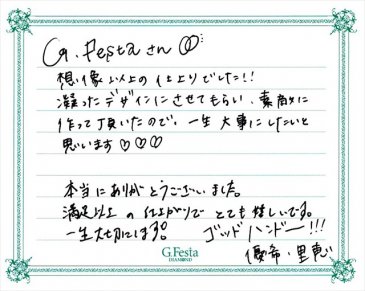 G.Festaさん
想像以上の仕上りでした!!
凝ったデザインにさせてもらい、素敵に
作って頂いたので、一生大事にしたいと
思います♡♡♡
本当にありがとうございました。
満足以上の仕上がりでとても嬉しいです。
一生大切にします。
ゴッドハンドー!!!
優希・里恵
G.Festa
DIAMOND